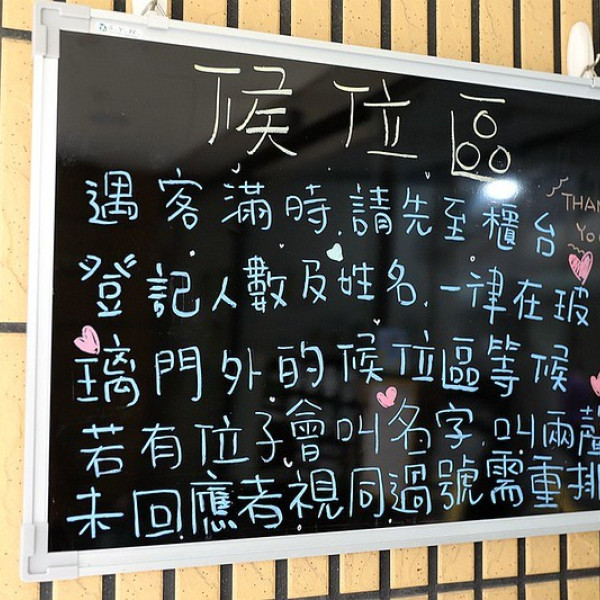 候位區
遇客滿時,請先至櫃台
THAN
YO
登記人數及姓名,一律在玻
璃門外的候位區等候
若有位子會叫名字,叫兩聲
未回應者視同過號需重排